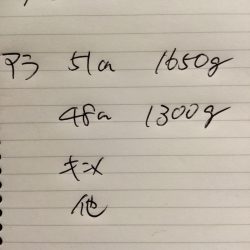 アラ 51cm 1650g
48cm 1300g
他